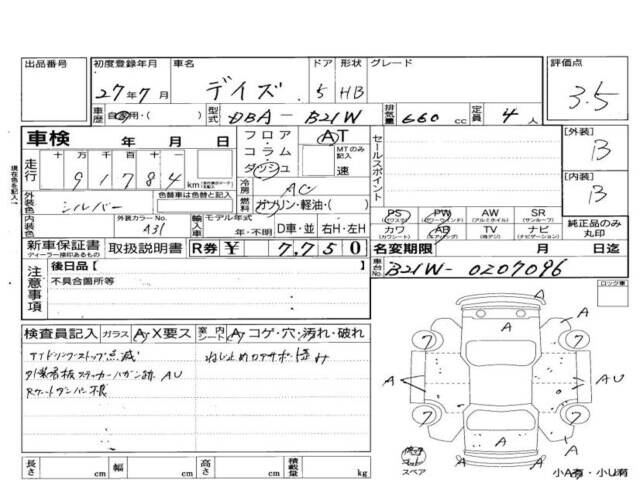 出品番号 初度登録年月 車名 ドア 形状 グレード 評価点
27年7月 デイズ 5 HB 3.5
車歴 自家用・( ) 型式 DBA-B21W 排気量 660 cc 定員 4人
車検 年 月 日 フロア AT
コラム MTのみ記入
ダッシュ 速
セールスポイント
[外装] B
[内装] B
走行 十 万 千 百 十 一
91784 km
現在色を記入
外装色 シルバー 色替車は色替と記入
冷房 AC
燃料 ガソリン・軽油・( )
内装色 外装カラーNo. A31 輸入車 モデル年式 年・不明 D車・並 右H・左H
PS (パワステ) PW (パワーウィンド) AW (アルミホイル) SR (サンルーフ)
カワ (カワシート) AB (エアバッグ) TV (地デジ) ナビ (ナビゲーション)
純正品のみ丸印
新車保証書 ディーラー捺印あるもの 取扱説明書 R券 ¥ 7,750 名変期限 月 日迄
注意事項 後日品 [ ]
不具合箇所等
車台No. B21W-0207096
ロック車
検査員記入 ガラス A・X要ス 室内シート A・コゲ・穴・汚れ・破れ
アイドリングストップ点滅
外業者板ステッカーハガシ跡 AU
A
A
7 7
A A AU
7 7
A A A
スペア
小A有・小U有
長さ cm 幅 cm 高さ cm 積載量 kg